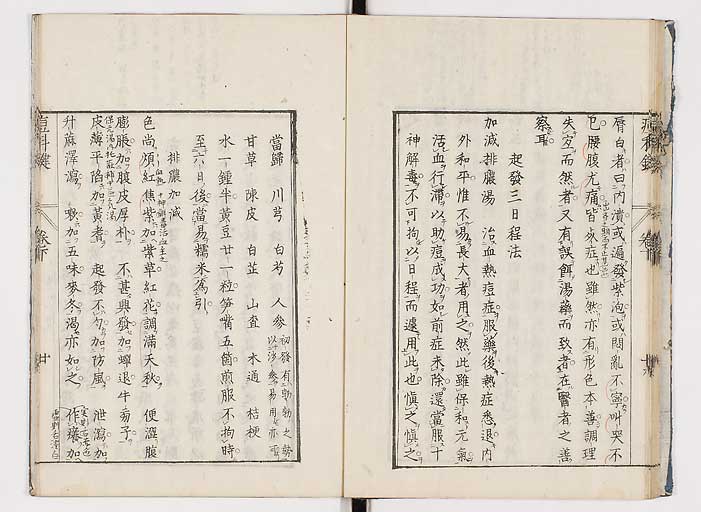 唇白者曰内潰或遍發紫泡或悶亂不寧叫哭不
已腰腹尤痛皆死症也雖然亦有形色本善調理
失宜而然者又有誤餌湯藥而致者在醫者之善
察耳
起發三日程法
加減排膿湯 治血熱痘症服藥後熱症悉退内
外和平惟不易長大者用之然此雖保和元氣
活血行滯以助痘成功如前症未除還當服十
神解毒不可拘以日程而遽用此也愼之愼之
當歸 川芎 白芍 人參 初發有勃勃之勢
甘草 陳皮 白芷 山査 木通 桔梗
水一鍾半黄豆廿一粒笋嘴五箇煎服不拘時
至六日後當易糯米爲引
排膿加減
色尚頒紅焦紫加紫草紅花調滿天秋 便澀腹
膨脹加腹皮厚朴 不甚興發加蟬退牛蒡子
皮薄平陷加黄耆 起發不匀加防風 泄瀉加
升麻澤瀉 嗽加五味麥冬渇亦如之 作癢加
痘科鍵
卷下